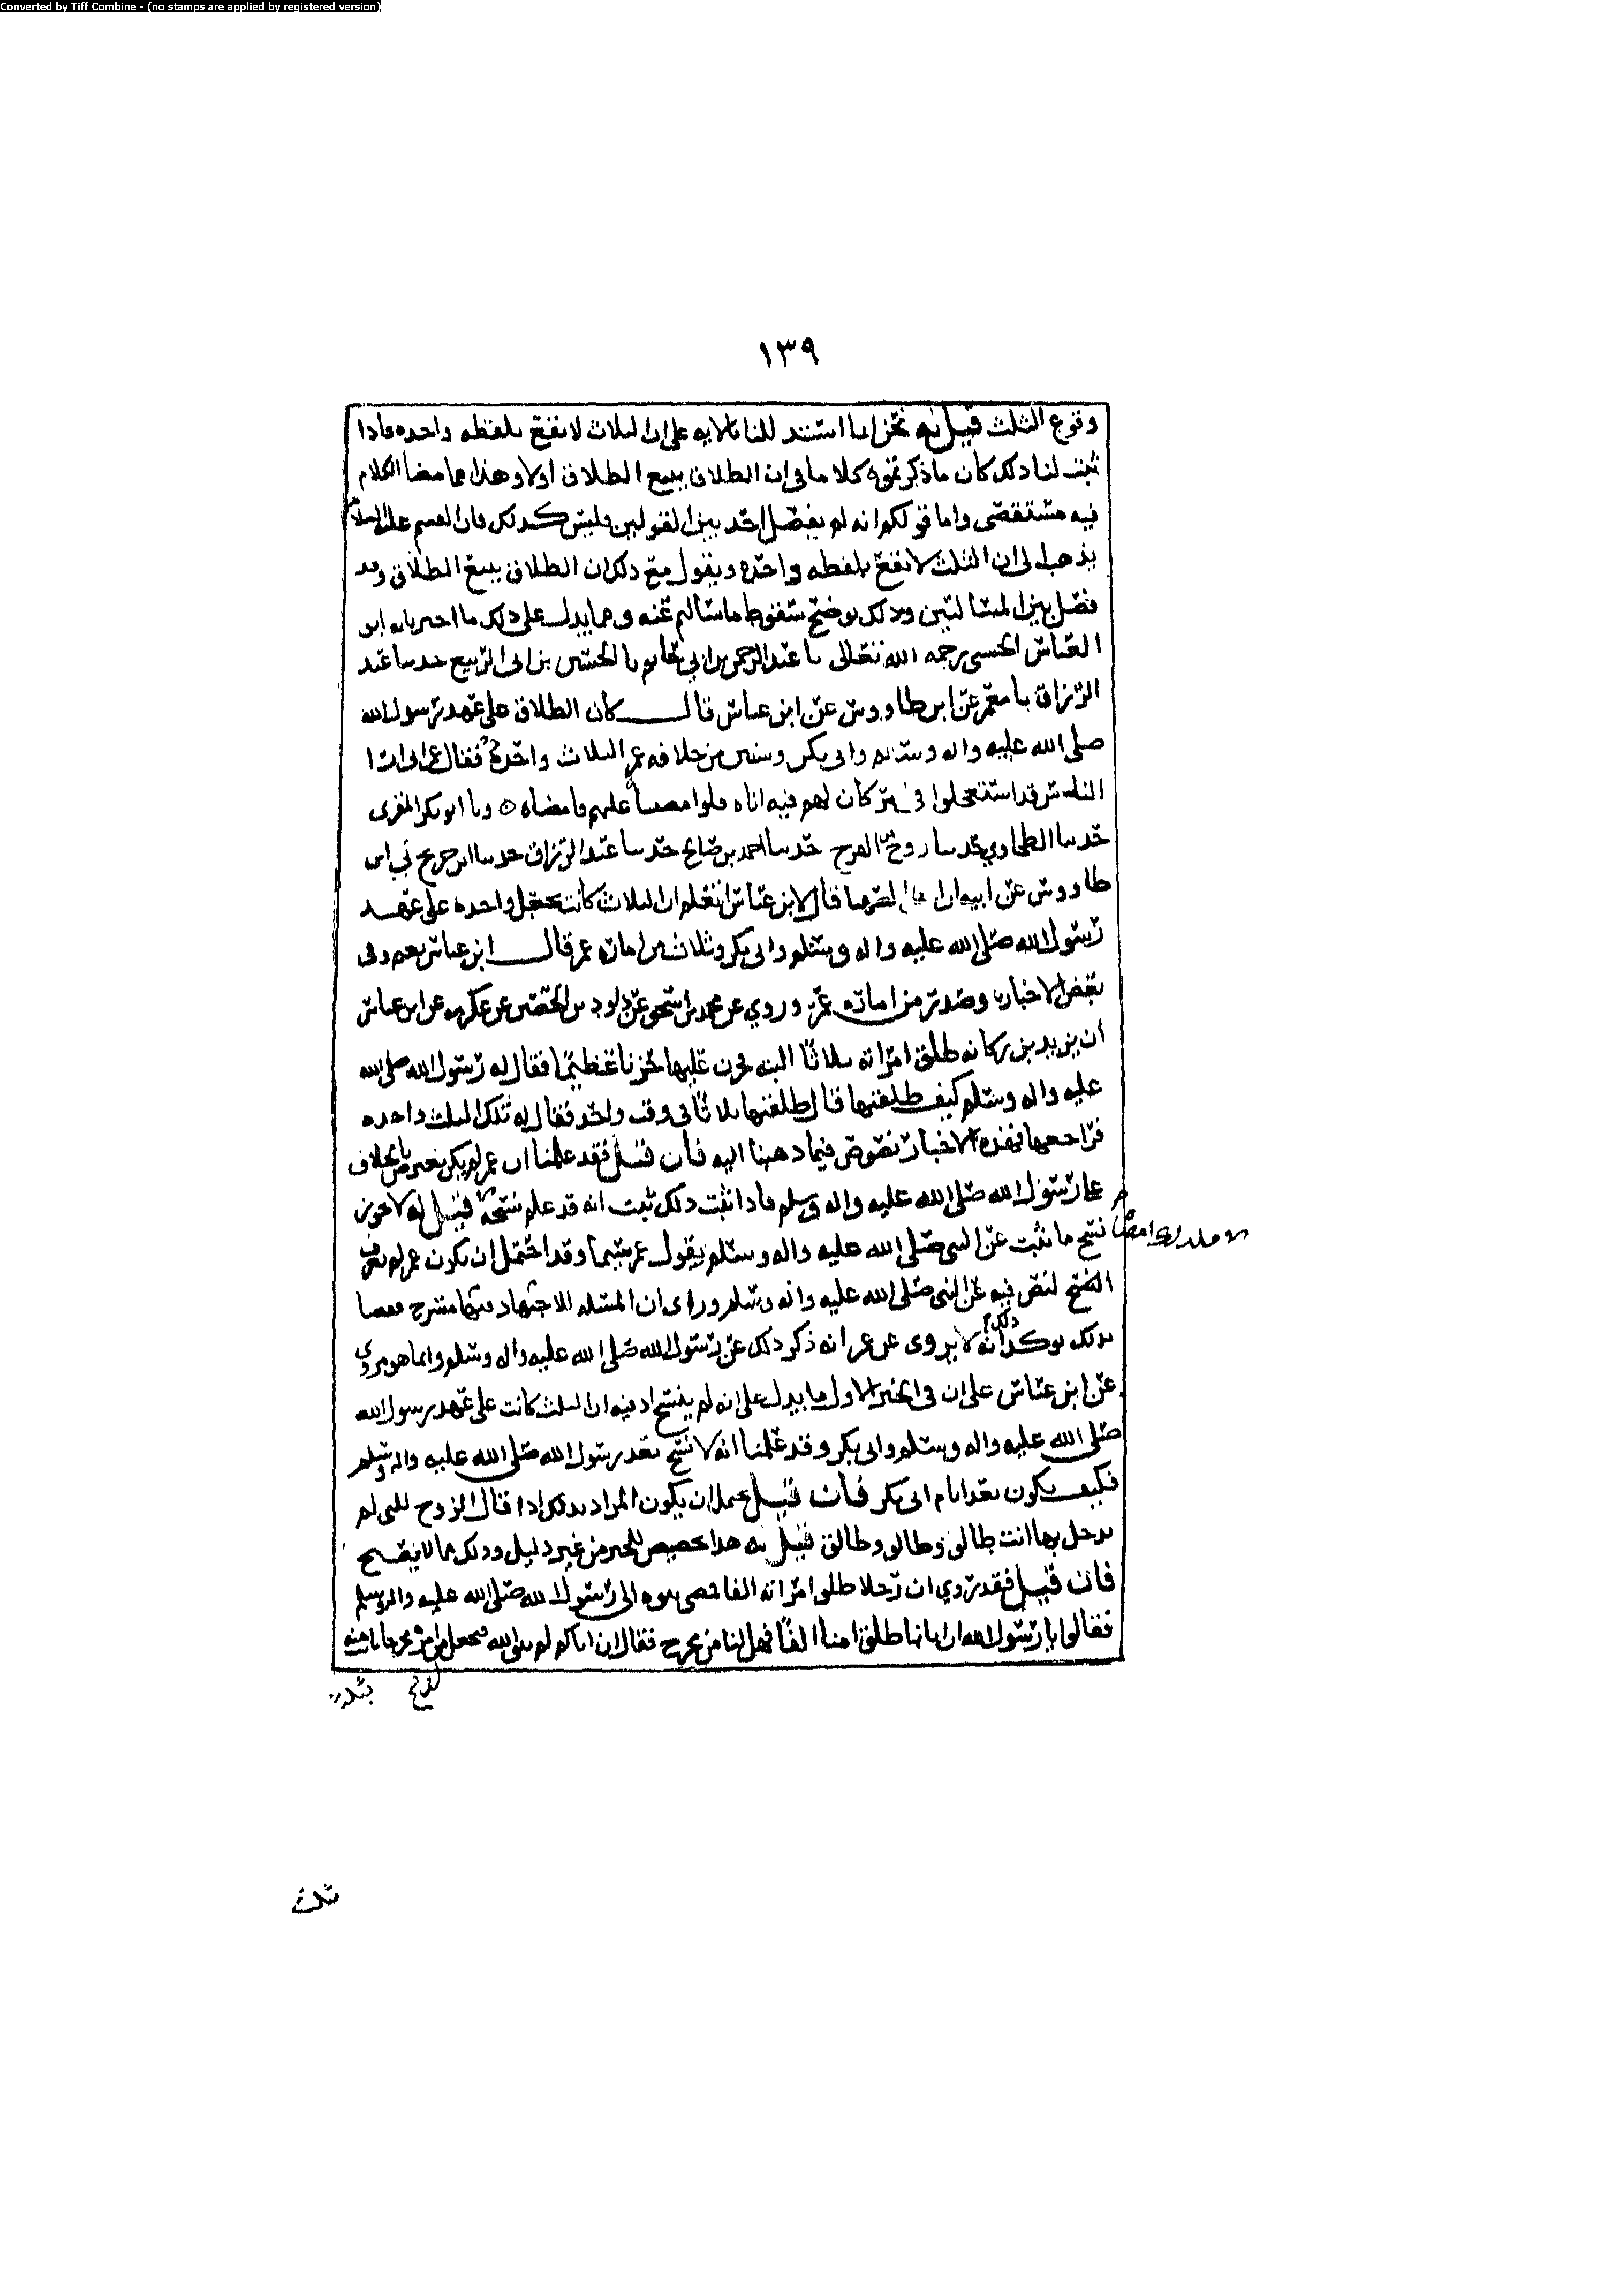 Converted by Tiff Combine - (no stamps are applied by registered version)
١٣٩
وقوع الثلث قيل له نحن انما استند للنا بالايه على ان الثلاث لا تقع بلفظه واحده فاذا
ثبت لنا ذلك كان ما ذكرتموه كلاما في ان الطلاق يتبع الطلاق اولا وهذا مما مضا الكلام
فيه مستقصى واما قولكم انه لم يفصل احد بين القولين فليس كذلك فان القسم عليه السلام
يذهب الى ان الثلث لا تقع بلفظه واحده ويقول مع ذلك ان الطلاق يتبع الطلاق وقد
فصل بين المسالتين وذلك يوضح سقوط ما سالتم عنه ومما يدل على ذلك ما اخبرنا به ابو
العباس الحسني رحمه الله تعالى نا عبد الرحمن بن ابي حاتم نا الحسين بن ابي الربيع حدثنا عبد
الرزاق نا معمر عن ابن طاووس عن ابن عباس قال كان الطلاق على عهد رسول الله
صلى الله عليه واله وسلم وابي بكر وسنتين من خلافه عمر الثلاث واحده فقال عمر ارى
الناس قد استعجلوا في شي كان لهم فيه اناه فلو امضينا عليهم فامضاه ○ ونا ابو بكر المقري
حدثنا الطحاوي حدثنا روح بن الفرج حدثنا احمد بن صالح حدثنا عبد الرزاق حدثنا ابن جريج ني ابن
طاووس عن ابيه ان ابا الصهبا قال لابن عباس اتعلم ان الثلاث كانت تجعل واحده على عهد
رسول الله صلى الله عليه واله وسلم وابي بكر وثلاث من اماره عمر قال ابن عباس نعم وفي
بعض الاخبار وصدر من اماره عمر وروي عن محمد بن اسحق عن داود بن الحصين عن عكرمه عن ابن عباس
ان يزيد بن ركانه طلق امراته ثلاثا البته فحزن عليها حزنا عظيما فقال له رسول الله صلى الله
عليه واله وسلم كيف طلقتها قال طلقتها ثلاثا في وقت واحد فقال له تلك الثلث واحده
فراجعها فهذه الاخبار نصوص فيما ذهبنا اليه فان قيل فقد علمنا ان عمر لم يكن يعترض بالخلاف
على رسول الله صلى الله عليه واله وسلم فاذا ثبت ذلك ثبت انه قد علم نسخه قيل له لا يجوز
نسخ ما ثبت عن النبي صلى الله عليه واله وسلم بقول عمر سيما وقد احتمل ان يكون عمر لم يعرف
النسخ لنص فيه عن النبي صلى الله عليه واله وسلم وراى ان المسئله للاجتهاد فيها مسرح فقضا
بذلك يوكد ذلك انه لا يروى عن عمر انه ذكر ذلك عن رسول الله صلى الله عليه واله وسلم وانما هو مروي
عن ابن عباس على ان في الخبر الاول ما يدل على انه لم ينسخ اذ فيه ان الثلث كانت على عهد رسول الله
صلى الله عليه واله وسلم وابي بكر وقد علمنا انه لا نسخ بعد رسول الله صلى الله عليه واله وسلم
فكيف يكون بعد ايام ابي بكر فان قيل يحمل ان يكون المراد بذلك اذا قال الزوج للتي لم
يدخل بها انت طالق وطالق وطالق قيل له هذا تخصيص للخبر من غير دليل وذلك مما لا يصح
فان قيل فقد روي ان رجلا طلق امراته الفا فمضى بنوه الى رسول الله صلى الله عليه واله وسلم
فقالوا يا رسول الله ان ابانا طلق امنا الفا فهل لنا من مخرج فقال ان اباكم لم يتق الله فيجعل من امره مخرجا بانت منه
بثلث
ثلث